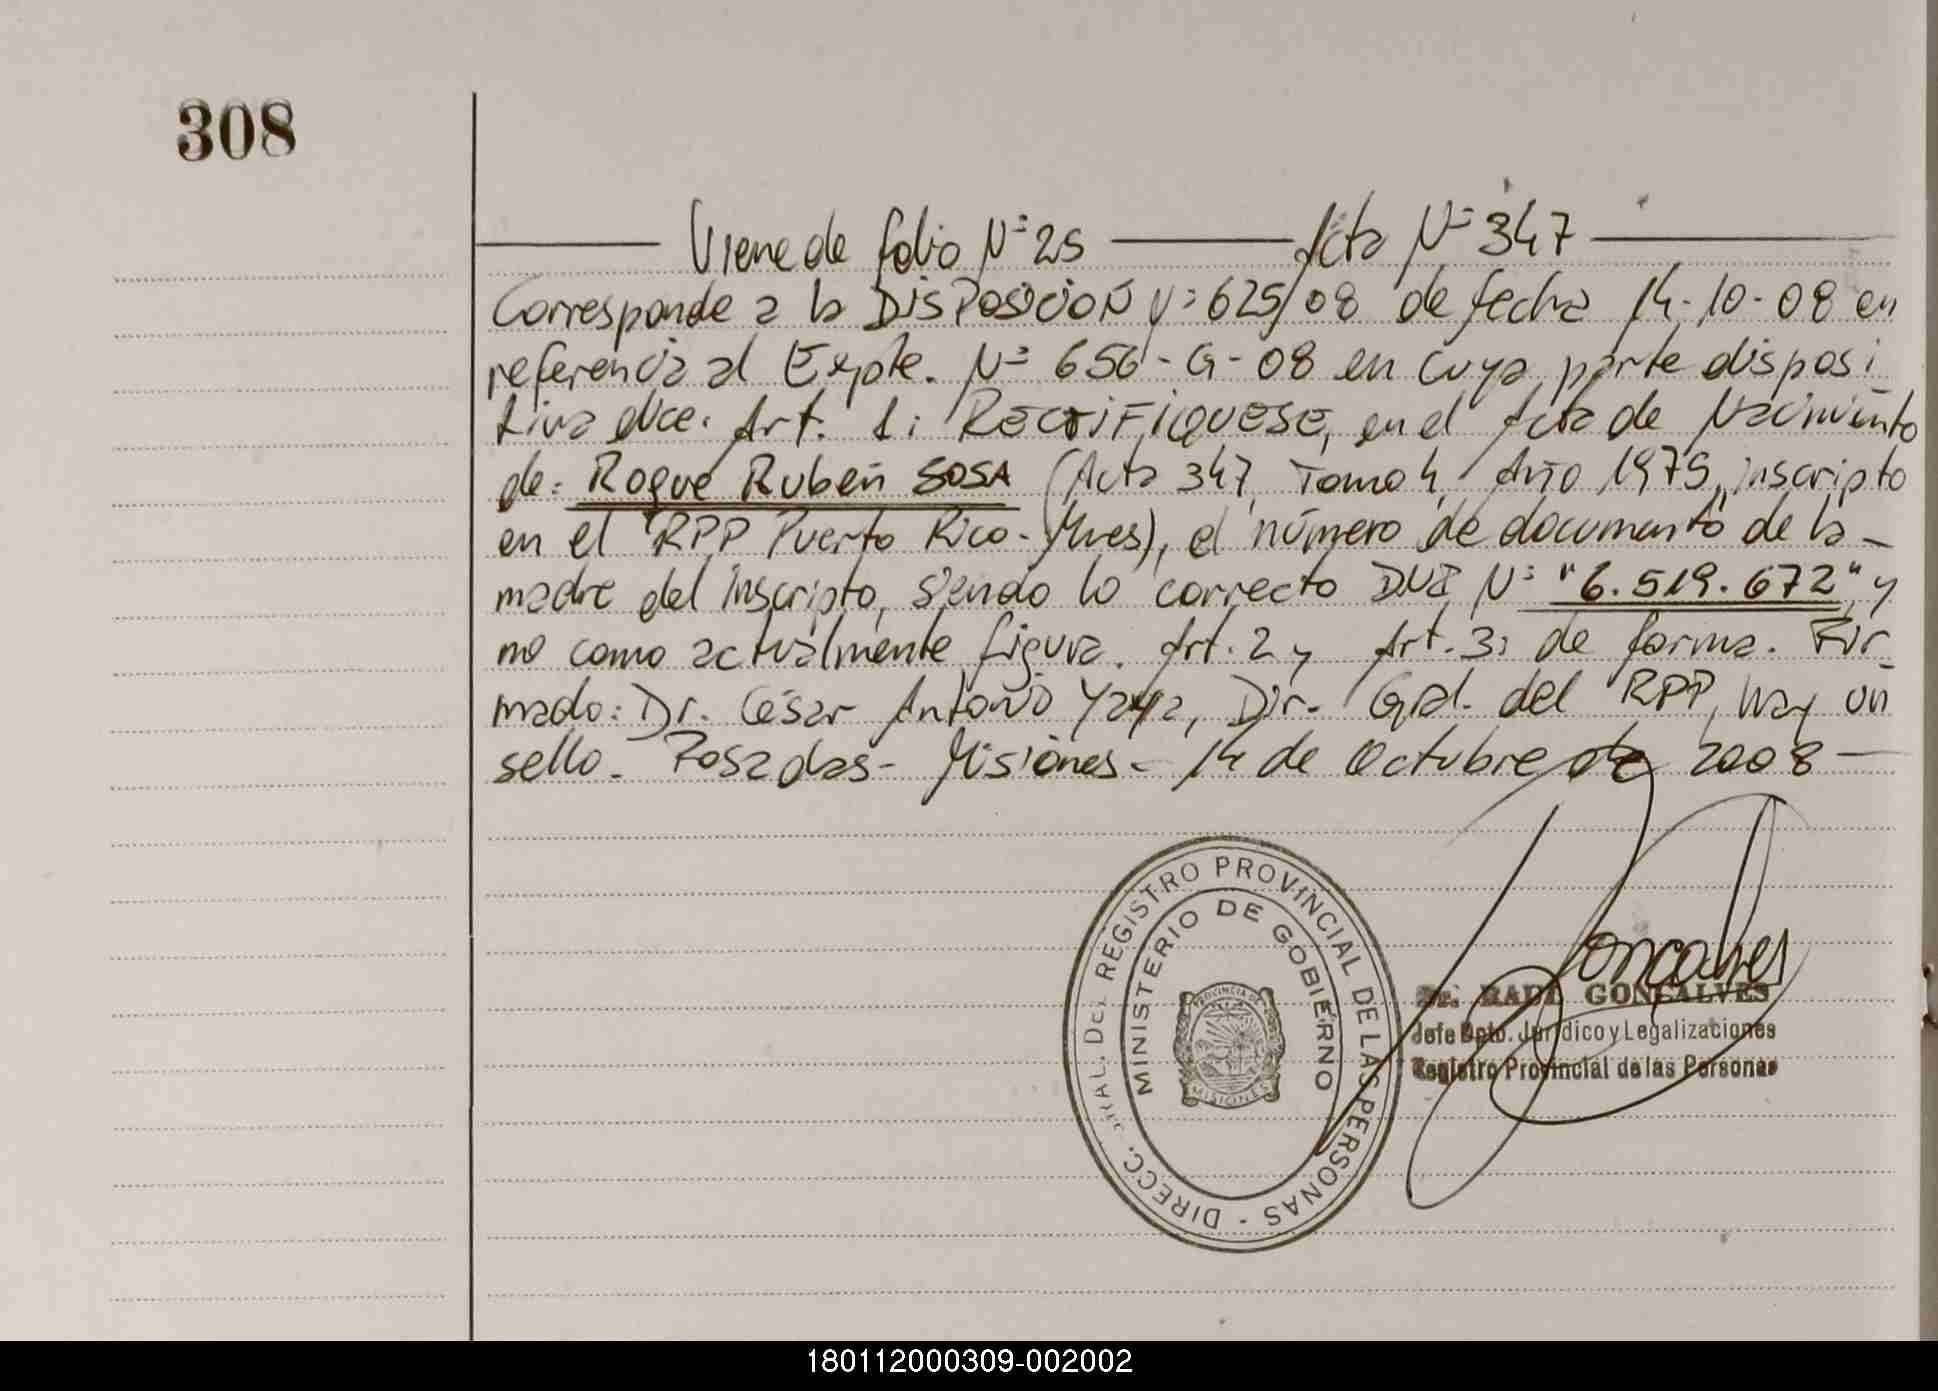 308
Viene de folio Nº 25 Acta Nº 347
Corresponde a la DISPOSICION Nº 625/08 de fecha 14-10-08 en
referencia al Expte. Nº 656-G-08 en cuya parte disposi
tiva dice: Art. 1: RECTIFIQUESE, en el Acta de Nacimiento
de: Roque Rubén SOSA (Acta 347, Tomo 4, Año 1975, inscripto
en el RPP Puerto Rico-Mnes), el número de documento de la -
madre del inscripto, siendo lo correcto DNI Nº "6.519.672" y
no como actualmente figura. Art. 2 y Art. 3: de forma. Fir-
mado: Dr. César Antonio Yaya, Dir. Gral. del RPP, hay un
sello. Posadas - Misiones - 14 de Octubre de 2008 -
DIRECC. GRAL. DEL REGISTRO PROVINCIAL DE LAS PERSONAS -
MINISTERIO DE GOBIERNO
PROVINCIA DE
MISIONES
Gonçalves
Dr. RAUL GONSALVES
Jefe Dpto. Jurídico y Legalizaciones
Registro Provincial de las Personas
180112000309-002002